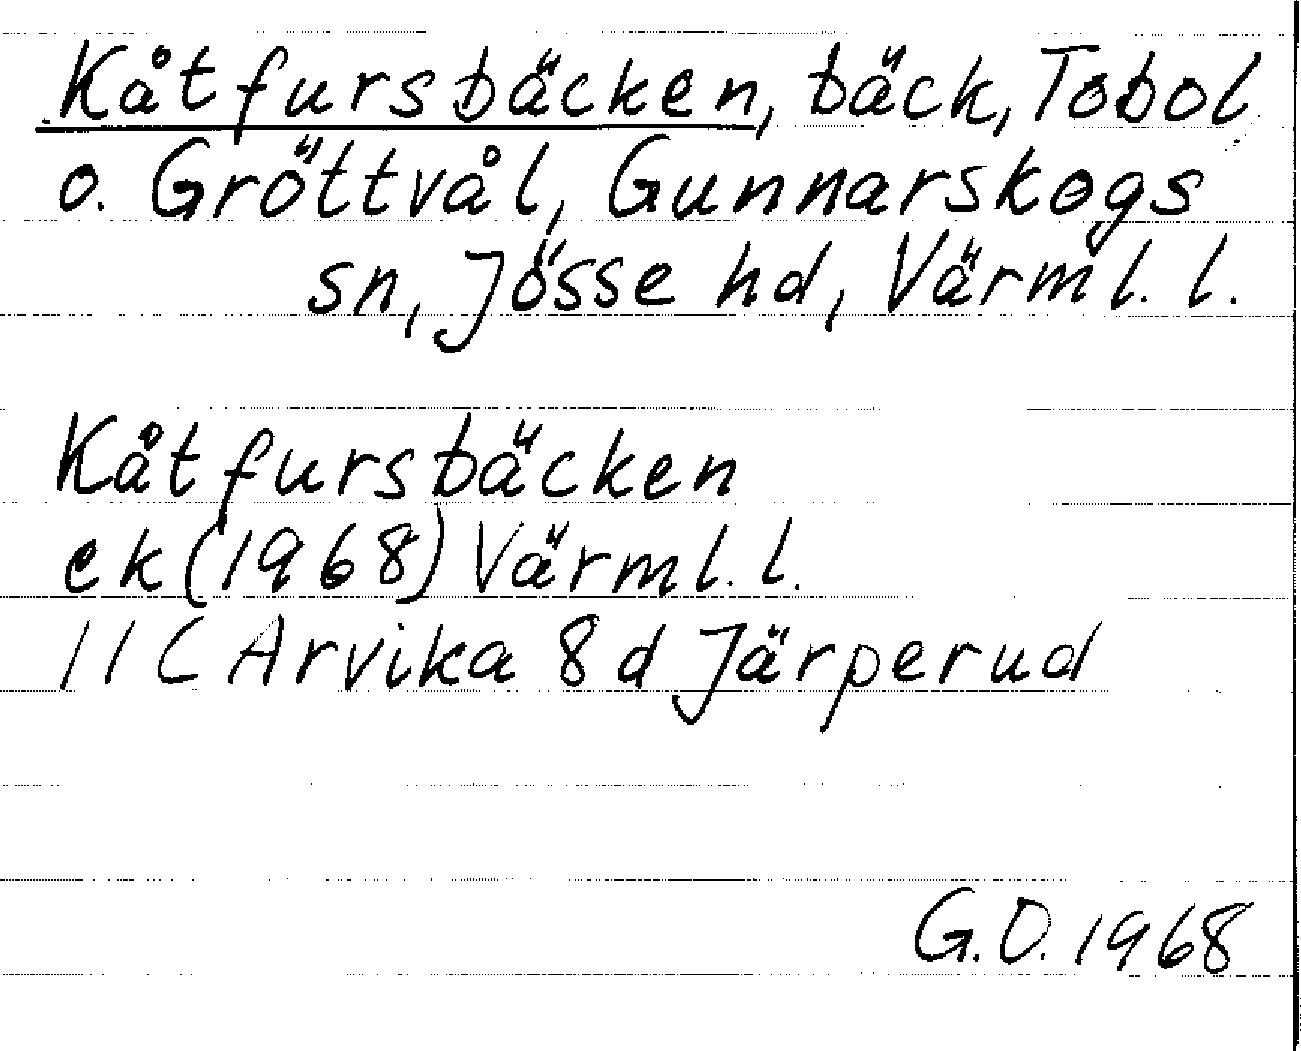 Kåtfursbäcken, bäck, Tobol
o. Gröttvål, Gunnarskogs
sn, Jösse hd, Värml. l.
Kåtfursbäcken
ek (1968) Värml. l.
11C Arvika 8d Järperud
G.O. 1968